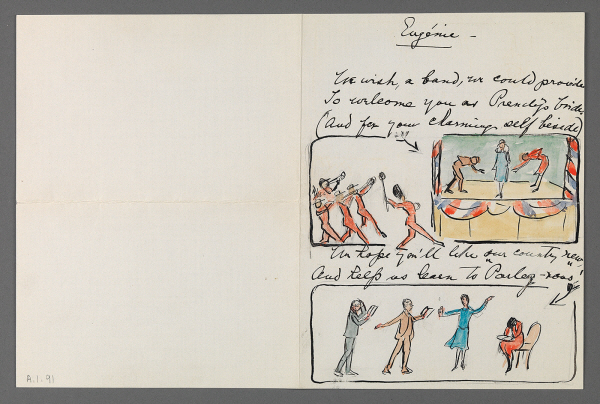 Eugénie –
We wish, a band, we could provide
To welcome you as Prendy's bride
(And for your charming self beside)
We hope you'll like our country new,
And help us learn to "Parlez-vous"
A.1.91